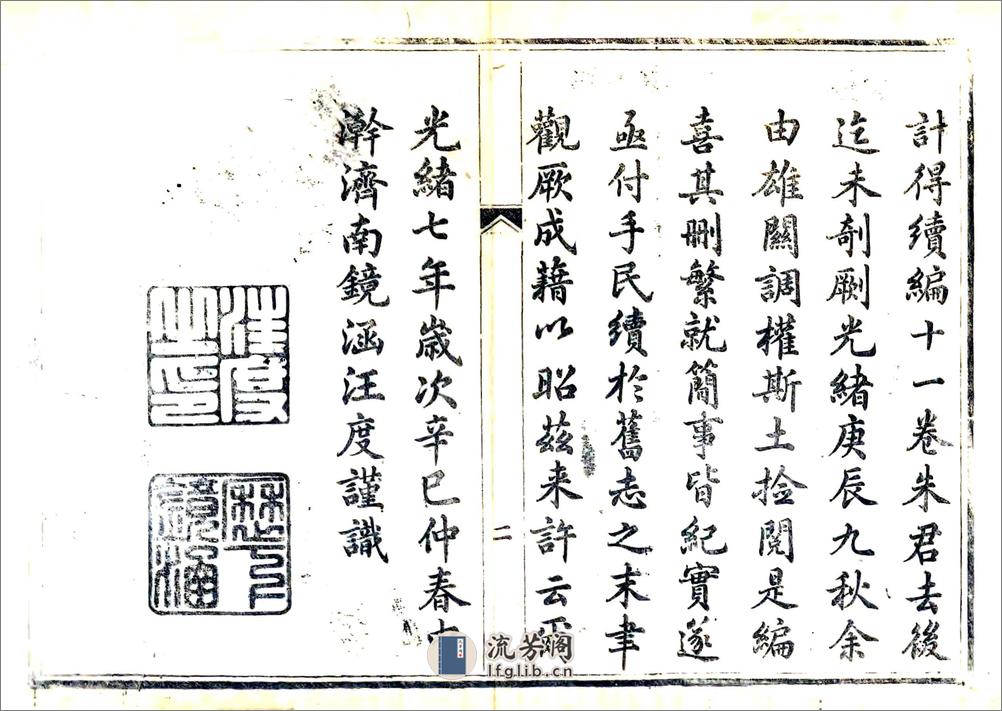 計得續編十一卷朱君去後
迄未剞劂光緒庚辰九秋余
由雄關調權斯土撿閱是編
喜其刪繁就簡事皆紀實遂
亟付手民續於舊志之末聿
觀厥成藉以昭茲来許云爾
二
光緒七年歲次辛巳仲春古
濟南鏡涵汪度謹識
汪度之印
鏡涵
流芳阁
lfglib.cn